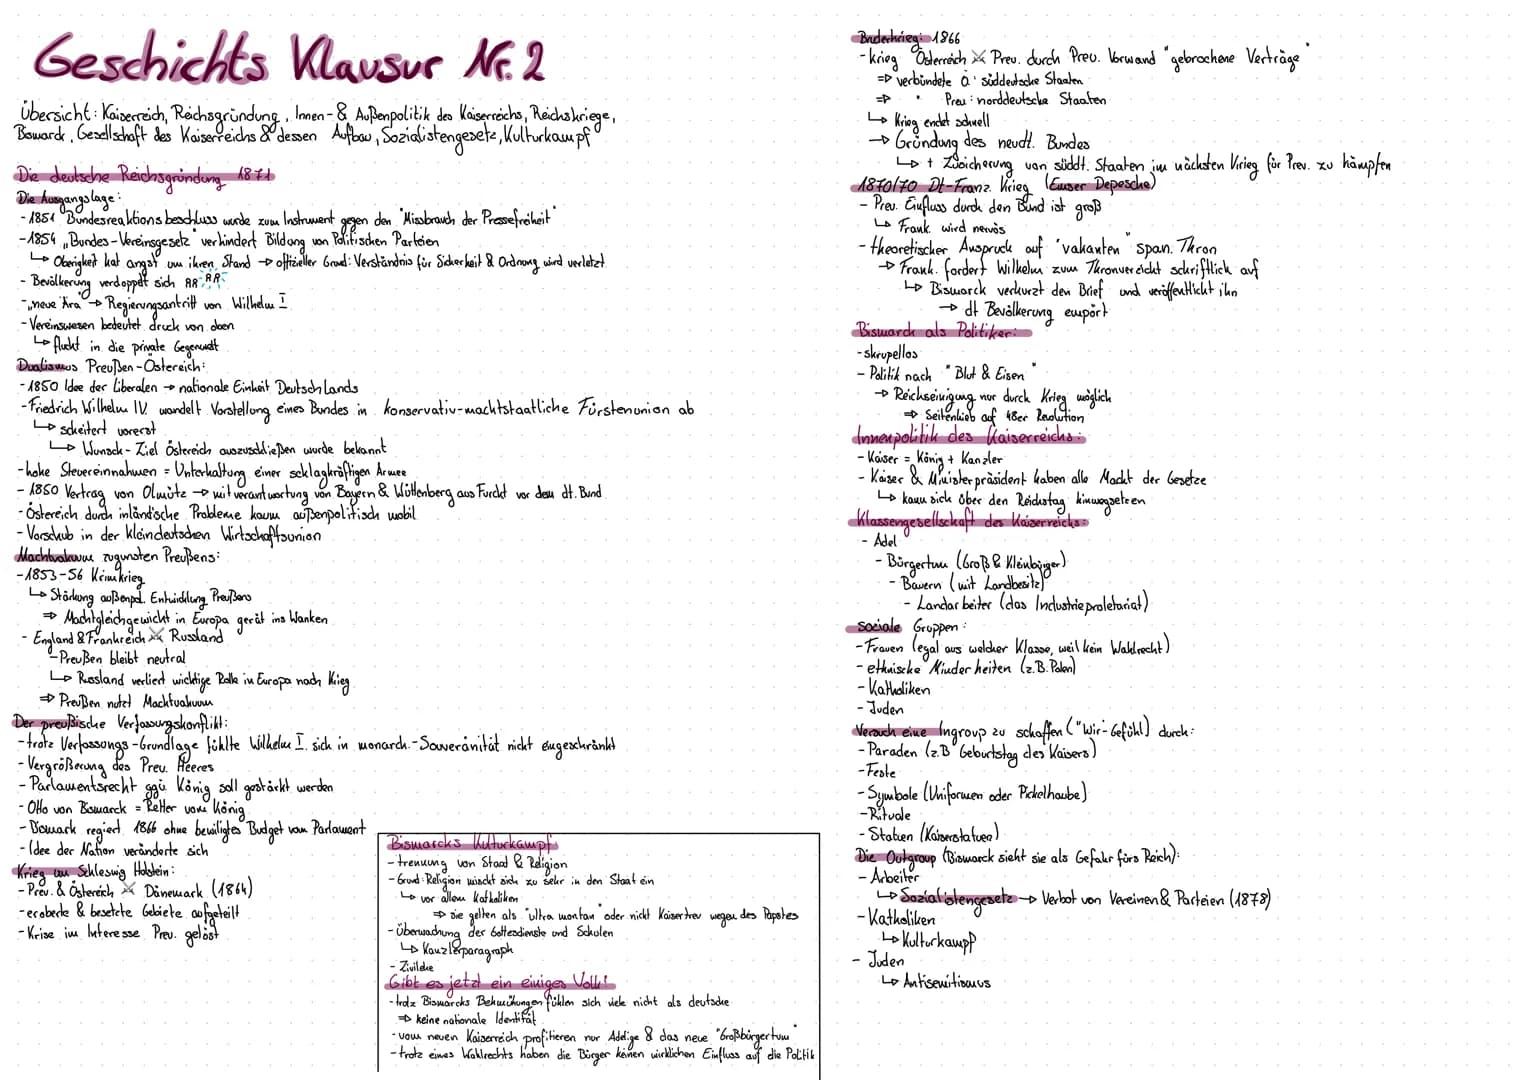 Geschichts Klausur Nr. 2
Übersicht: Kaiserreich, Reichsgründung, Innen- & Außenpolitik des Kaiserreichs, Reichskriege,
Bismarck, Gesellschaft des Kaiserreichs & dessen Aufbau, Sozialistengesetz, Kulturkampf
Die deutsche Reichsgründung 1871
Die Ausgangslage:
- 1851 Bundesreaktionsbeschluss wurde zum Instrument gegen den "Missbrauch der Pressefreiheit"
- 1854 „Bundes-Vereinsgesetz" verhindert Bildung von Politischen Parteien
↳ Obrigkeit hat angst um ihren Stand → offizieller Grund: Verständnis für Sicherheit & Ordnung wird verletzt
- Bevölkerung verdoppelt sich
- „neue Ära" → Regierungsantritt von Wilhelm I
- Vereinswesen bedeutet druck von oben
↳ flucht in die private Gegenwelt
Dualismus Preußen-Östereich:
- 1850 Idee der Liberalen → nationale Einheit Deutschlands
- Friedrich Wilhelm IV. wandelt Vorstellung eines Bundes in konservativ-machtstaatliche Fürstenunion ab
↳ scheitert vorerst
↳ Wunsch-Ziel Östereich auszuschließen wurde bekannt
- hohe Steuereinnahmen = Unterhaltung einer schlagkräftigen Armee
- 1850 Vertrag von Olmütz → mitverantwortung von Bayern & Würtenberg aus Furcht vor dem dt. Bund
- Östereich durch inländische Probleme kaum außenpolitisch mobil
- Vorschub in der kleindeutschen Wirtschaftsunion
Machtvakuum zugunsten Preußens:
- 1853-56 Krimkrieg
↳ Stärkung außenpol. Entwicklung Preußens
⇒ Machtgleichgewicht in Europa gerät ins Wanken
- England & Frankreich ⚔ Russland
- Preußen bleibt neutral
↳ Russland verliert wichtige Rolle in Europa nach Krieg
⇒ Preußen nutzt Machtvakuum
Der preußische Verfassungskonflikt:
- trotz Verfassungs-Grundlage fühlte Wilhelm I. sich in monarch.-Souveränität nicht eingeschränkt
- Vergrößerung des Preu. Heeres
- Parlamentsrecht ggü. König soll gestärkt werden
- Otto von Bismarck = Retter vom König
- Bismark regiert 1866 ohne bewilligtes Budget vom Parlament
- Idee der Nation veränderte sich
Krieg um Schleswig Holstein:
- Preu. & Östereich ⚔ Dänemark (1864)
- eroberte & besetzte Gebiete aufgeteilt
- Krise im Interesse Preu. gelöst
Bismarcks Kulturkampf:
- trennung von Staat & Religion
- Grund: Religion mischt sich zu sehr in den Staat ein
↳ vor allem Katholiken
⇒ sie gelten als "ultra montan" oder nicht Kaisertreu wegen des Papstes
- Überwachung der Gottesdienste und Schulen
↳ Kanzlerparagraph
- Zivilehe
Gibt es jetzt ein einiges Volk?
- trotz Bismarcks Bemühungen fühlen sich viele nicht als deutsche
⇒ keine nationale Identität
- vom neuen Kaiserreich profitieren nur Adelige & das neue "Großbürgertum"
- trotz eines Wahlrechts haben die Bürger keinen wirklichen Einfluss auf die Politik
Bruderkrieg: 1866
- krieg Österreich ⚔ Preu. durch Preu. Vorwand "gebrochene Verträge"
⇒ verbündete Ö: süddeutsche Staaten
⇒ " Preu: norddeutsche Staaten
↳ Krieg endet schnell
→ Gründung des neudt. Bundes
↳ + Zusicherung von süddt. Staaten im nächsten Krieg für Preu. zu kämpfen
1870/70 Dt-Franz. Krieg (Emser Depesche)
- Preu. Einfluss durch den Bund ist groß
↳ Frank. wird nervös
- theoretischer Anspruch auf "vakanten" span. Thron
→ Frank. fordert Wilhelm zum Thronverzicht schriftlich auf
↳ Bismarck verkürzt den Brief und veröffentlicht ihn
→ dt Bevölkerung empört
Bismarck als Politiker:
- skrupellos
- Politik nach "Blut & Eisen"
→ Reichseinigung nur durch Krieg möglich
⇒ Seitenhieb auf 48er Revolution
Innenpolitik des Kaiserreichs:
- Kaiser = König + Kanzler
- Kaiser & Ministerpräsident haben alle Macht der Gesetze
↳ kann sich über den Reichstag hinwegsetzen
Klassengesellschaft des Kaiserreichs:
- Adel
- Bürgertum (Groß & Kleinbürger)
- Bauern (mit Landbesitz)
- Landarbeiter (das Industrieproletariat)
soziale Gruppen:
- Frauen (egal aus welcher Klasse, weil kein Wahlrecht)
- ethnische Minderheiten (z.B. Polen)
- Katholiken
- Juden
Versuch eine Ingroup zu schaffen ("Wir-Gefühl) durch:
- Paraden (z.B Geburtstag des Kaisers)
- Feste
- Symbole (Uniformen oder Pickelhaube)
- Rituale
- Statuen (Kaiserstatuen)
Die Outgroup (Bismarck sieht sie als Gefahr fürs Reich):
- Arbeiter
↳ Sozialistengesetz → Verbot von Vereinen & Parteien (1878)
- Katholiken
↳ Kulturkampf
- Juden
↳ Antisemitismus